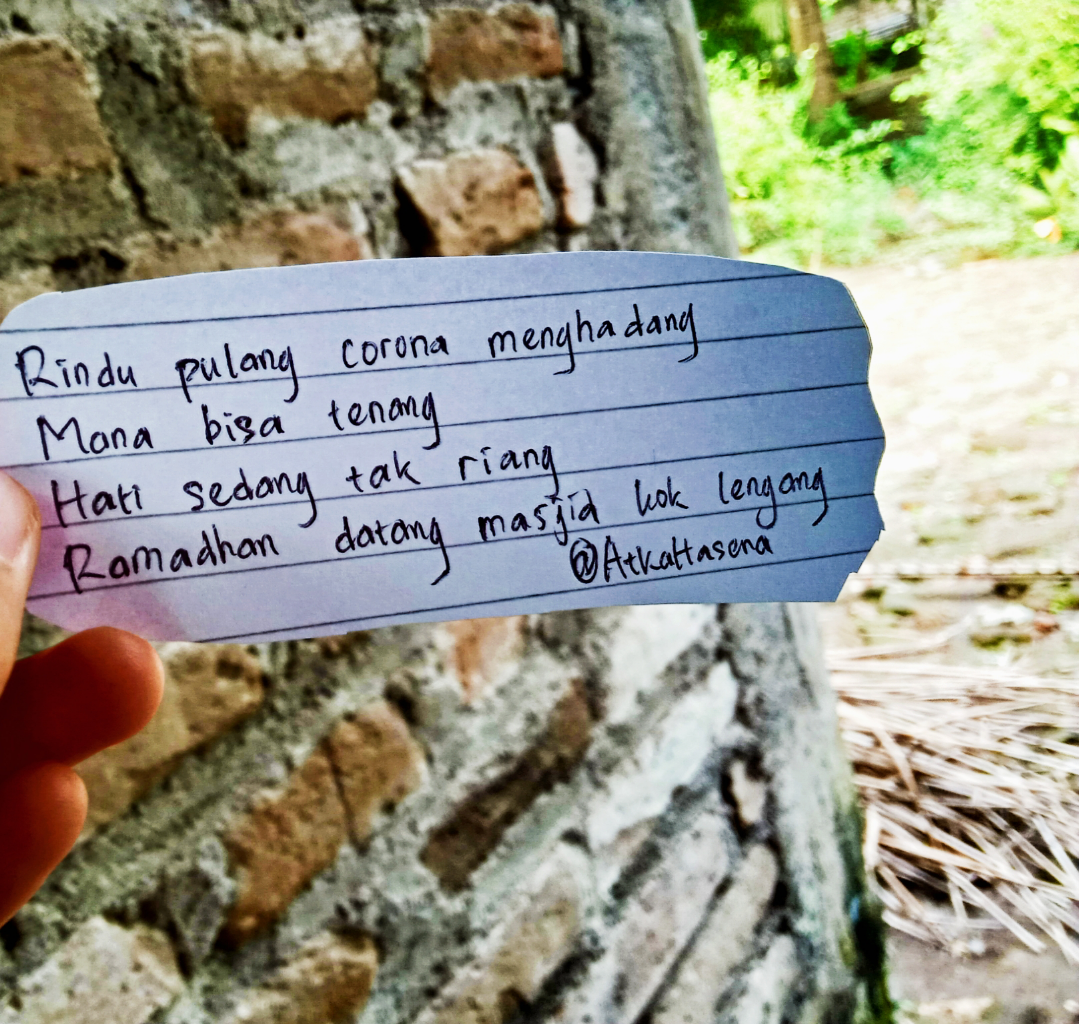 Rindu pulang corona menghadang
Mana bisa tenang
Hati sedang tak riang
Ramadhan datang masjid kok lengang
@AtkaHasena